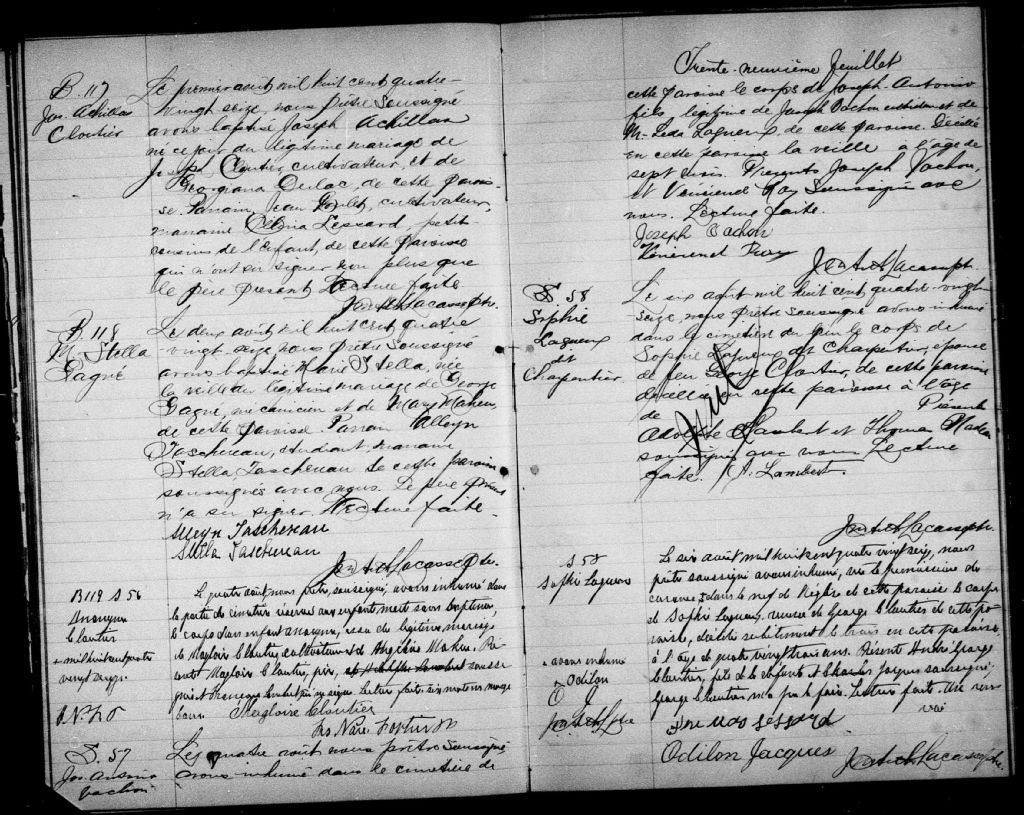 B. 117
Jos. Achillas
Cloutier
Le premier août mil huit cent quatre-
vingt seize, nous prêtre soussigné
avons baptisé Joseph Achillas
né ce jour du légitime mariage de
Joseph Cloutier cultivateur et de
Georgiana Dulac, de cette parois-
se. Parrain, Jean cultivateur,
marraine Lessard, petit
cousins de l'enfant, de cette paroisse
qui n'ont su signer non plus que
le père présent. Lecture faite.
Jos A H Lacasse ptr.
B. 118
M. Stella
Gagné
Le deux août mil huit cent quatre
vingt seize, nous prêtre soussigné
avons baptisé Marie Stella, née
la veille du légitime mariage de George
Gagné, mécanicien et de Mary Maheu,
de cette paroisse. Parrain Alleyn
Taschereau, étudiant, marraine
Stella Taschereau de cette paroisse
soussignés avec nous. Le père présent
n'a su signer. Lecture faite.
Alleyn Taschereau
Stella Taschereau
Jos A H Lacasse Ptr.
B 119 S 56
Anonyme
Cloutier
+ mil huit cent quatre
vingt seize
Le quatre août nous prêtre, soussigné, avons inhumé dans
la partie du cimetière réservée aux enfants morts sans baptême,
le corps d'un enfant anonyme, issu du légitime mariage
de Magloire Cloutier, cultivateur et de Angelina Maheu. Pré-
sents Magloire Cloutier, père,
Lecture faite.
Magloire Cloutier
S. 57
Jos. Antonio
Vachon
Le quatre août nous prêtre soussigné
avons inhumé dans le cimetière de
Trente-neuvième feuillet
cette paroisse le corps de Joseph-Antonio
fils légitime de Joseph Vachon et de
M. Léda Lagueux de cette paroisse. Décédé
en cette paroisse la veille à l'âge de
sept mois. Présents Joseph Vachon,
et Vénérend Roy soussignés avec
nous. Lecture faite.
Joseph Vachon
Vénérend Roy
Jos A H Lacasse ptr.
S 58
Sophie
Lagueux
dit
Charpentier
Le six août mil huit cent quatre-vingt
seize, nous prêtre soussigné avons inhumé
dans le cimetière du lieu le corps de
Sophie Lagueux dit Charpentier, épouse
de feu George Cloutier, de cette paroisse
décédée en cette paroisse à l'âge
de Présents
Adolphe Lambert et Thomas Maheu
soussignés avec nous Lecture
faite. A. Lambert
Nul
Jos A H Lacasse ptr.
S 58
Sophie Lagueux
Le six août mil huit cent quatre vingt seize, nous
prêtre soussigné avons inhumé, avec la permission du
dans la nef de l'église de cette paroisse le corps
de Sophie Lagueux, veuve de George Cloutier de cette pa-
roisse, décédée subitement le trois en cette paroisse,
à l'âge de quatre vingt trois ans. Présents André George
Cloutier, fils de la défunte et Charles Jacques soussigné;
George Cloutier n'a pu le faire. Lecture faite.
+ avons inhumé
Odilon
O J
Lessard
Odilon Jacques
Jos A H Lacasse ptr.